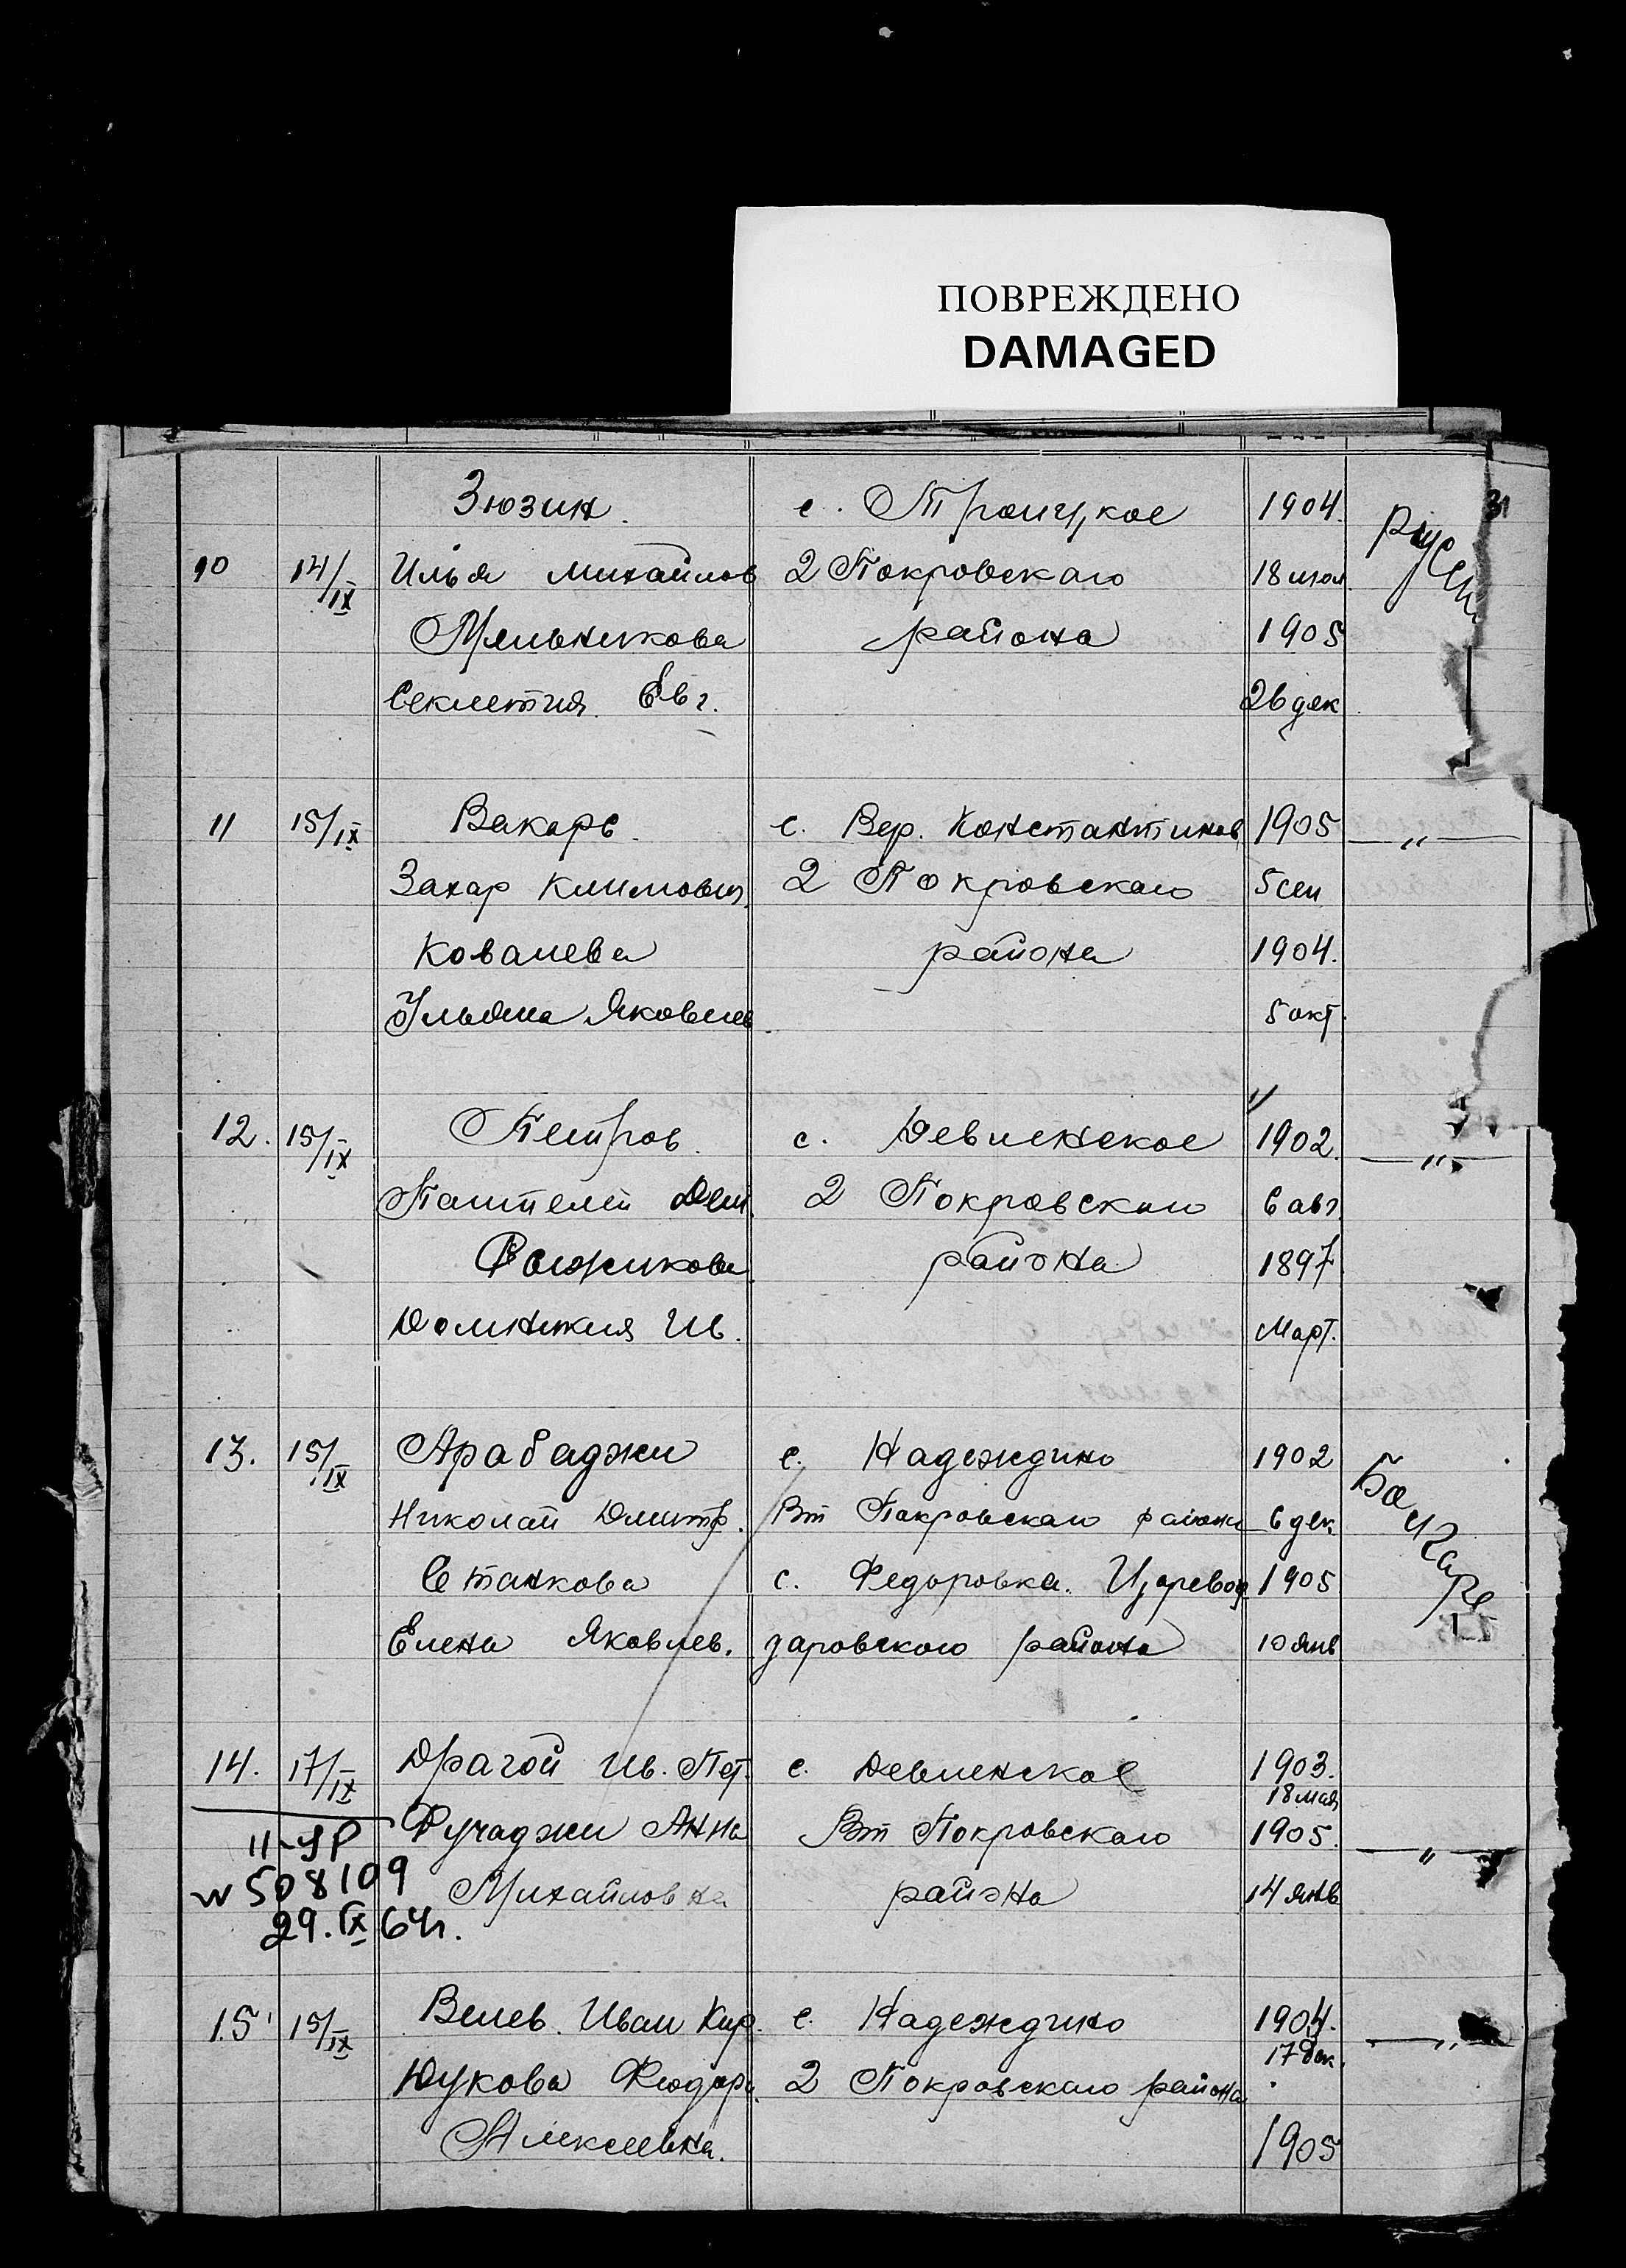 ПОВРЕЖДЕНО
DAMAGED
Зюзин. с. Троицкое 1904.
10 14/IX Илья Михайлов 2 Покровского 18 июл
Мельникова района 1905
Секлетия Евг. 26 дек
11 15/IX Вакарь с. Вер. Константинов 1905 —"—
Захар Климович 2 Покровского 5 сен
Ковалева района 1904.
Ульяна Яковлев 5 окт.
12. 15/IX Петров. с. Девленское 1902. —"—
Пантелей Дем. 2 Покровского 6 авг.
района 1897
Домникия Ив. Март.
13. 15/IX Арабаджи с. Надеждино 1902
Николай Дмитр. Вт Покровского района 6 дек
Станкова с. Федоровка. Царевод 1905
Елена Яковлев. даровского района 10 янв
14. 17/IX Драгой Ив. Пет. с. Девленское 1903.
18 мая
Фучаджи Анна Вт Покровского 1905. —"—
II-УР
Михайловна района 14 янв
№ 508109
29.IX 64г.
15. 15/IX Велев. Иван Кир. с. Надеждино 1904. —"—
17 дек.
Юкова Феодора 2 Покровского района
Алексеевна. 1905